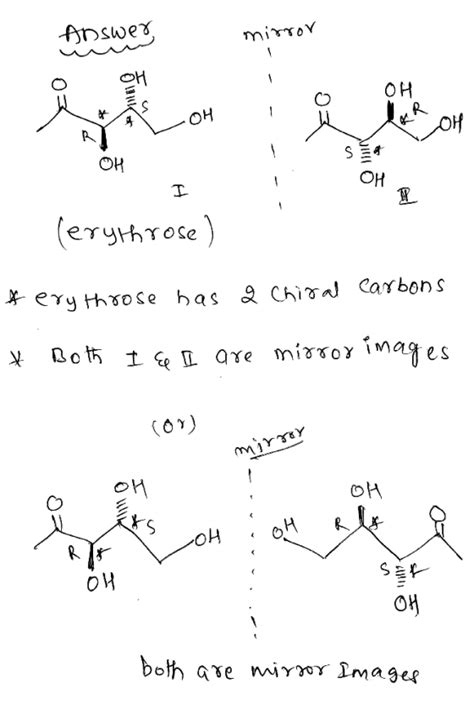 Answer mirror
O OH
* * S OH
R OH
I
O OH
* R OH
S *
OH
II
(erythrose)
* erythrose has 2 chiral carbons
* Both I & II are mirror images
(or)
mirror
O OH
* S OH
R *
OH
OH OH O
R *
S *
OH
both are mirror Images